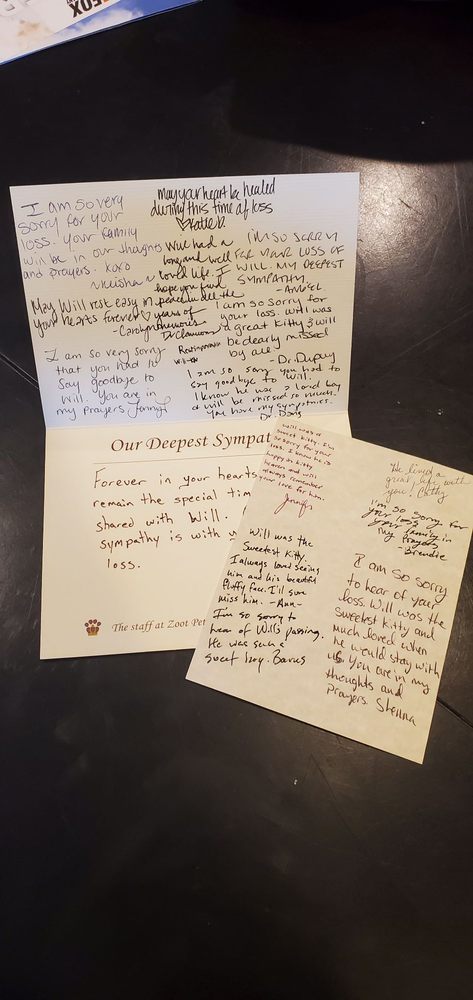 FOX
I am so very
sorry for your
loss. Your family
will be in our thoughts
and prayers. xoxo
may your heart be healed
during this time of loss
♡ Katie D.
Will had a
long and well
loved life. I
hope you find
peace in all the
years of
memories
Dr Clawson
I'M SO SORRY
FOR YOUR LOSS OF
WILL. MY DEEPEST
SYMPATHY.
-AMBER
May Will rest easy in
your hearts forever ♡
-Carolyn
I am so sorry for
your loss. Will was
a great Kitty & will
be dearly missed
by all!
-Dr. Dupuy
I am so very sorry
that you had to
say goodbye to
Will. You are in
my prayers
I am so sorry you had to
say goodbye to Will.
I know he was a loved boy
& will be missed so much.
You have my sympathies.
Dr. Doris
Our Deepest Sympat
Forever in your hearts
remain the special tim
shared with Will.
sympathy is with
loss.
The staff at Zoot Pet
Will was a
sweet kitty. I'm
so sorry for your
loss. I know he is
happy in kitty
heaven and will
always remember
your love for him.
Jennifer
He lived a
great life with
you! Cathy
I'm so sorry for
your loss
your family in
my prayers
-Brendie
Will was the
Sweetest Kitty.
I always loved seeing
him and his beautiful
fluffy face. I'll sure
miss him. -Ann-
I'm so sorry to
hear of Will's passing.
He was such a
sweet boy.
I am so sorry
to hear of your
loss. Will was the
sweetest kitty and
much loved when
he would stay with
us. You are in my
thoughts and
prayers. Shenna